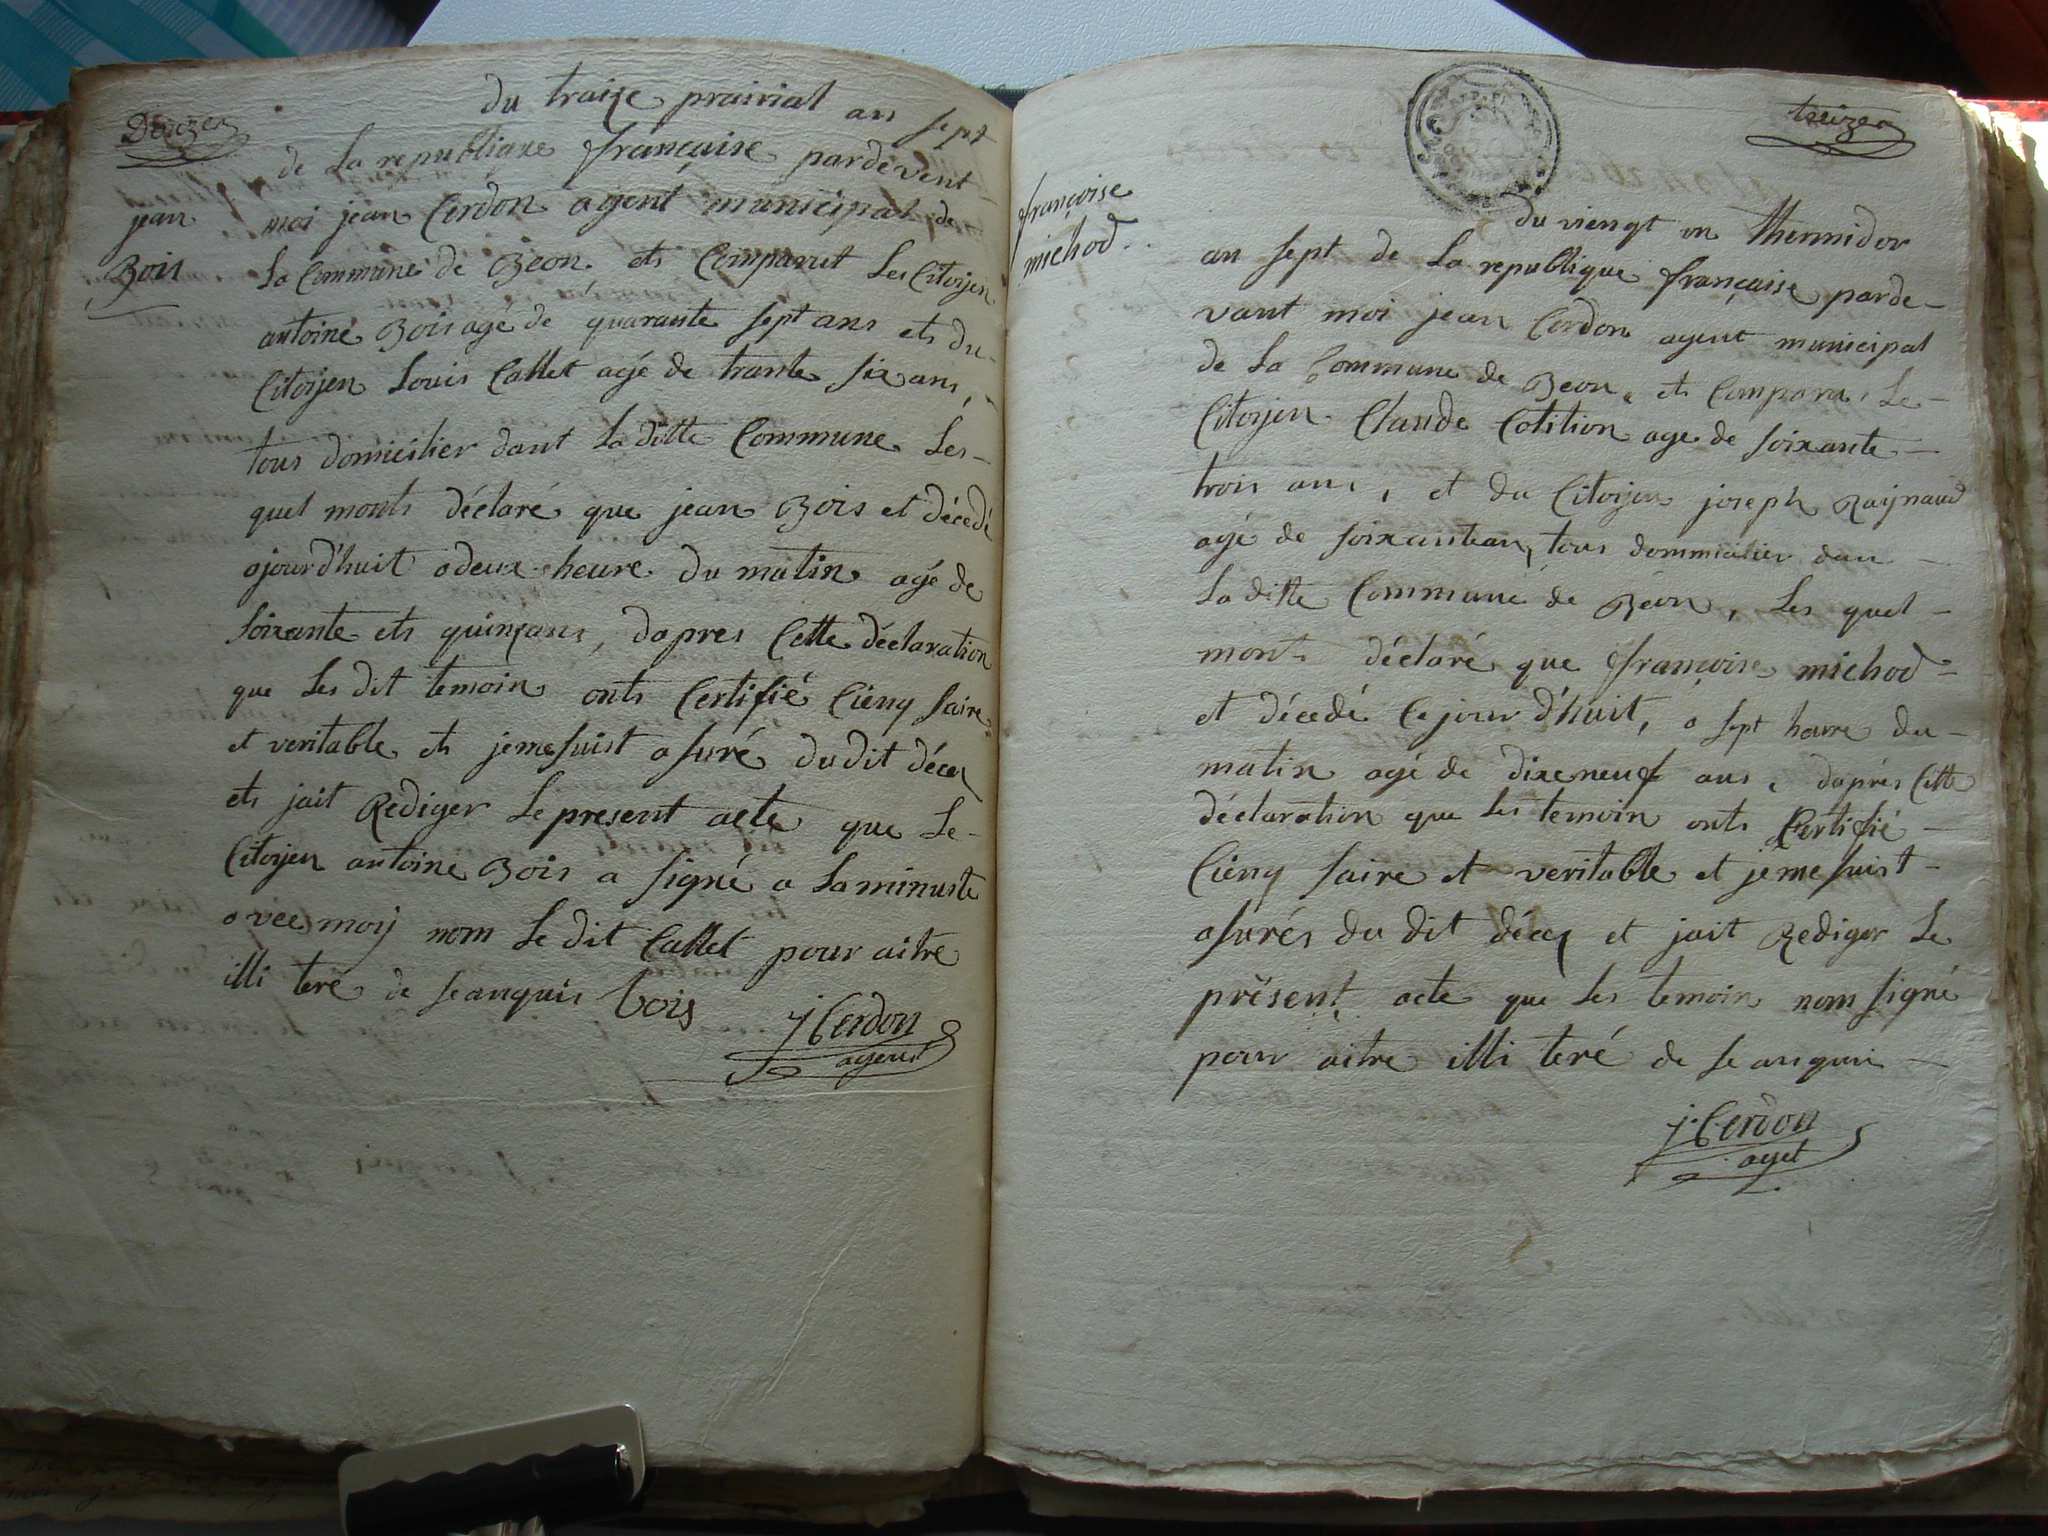 Douze
jean
Bois
du traize prairial an sept
de La republique française pardevent
moi jean Cerdon agent municipal de
La Commune de Beon, ets Comparut Les Citoyen
antoine Bois agé de quarante sept ans ets du
Citoyen Louis Callet agé de trante six ans,
tous domicilier dant La ditte Commune Les-
quel monts déclaré que jean Bois et décedé
ajourd'huit a deux heure du matin agé de
soixante ets quinzans, dapres Cette déclaration
que Les dit temoin onts Certifié Cieny saire
et veritable ets jemesuist asuré du dit déces
ets jait Rediger Le present acte que Le-
Citoyen antoine Bois a signé a La minuste
avec moy nom Le dit Callet pour aitre
illi teré de seanquis bois
j Cerdon
agent
treize
françoise
michod
du viengt un Thermidor
an sept de La republique française parde-
vant moi jean Cerdon agent municipal
de La Commune de Beon, ets Comparu, Le-
Citoyen Claude Cotition age de soixante-
trois ans, et du Citoyen joseph Raynaud
agé de soixantean, tous dommicilier dan
La ditte Commune de Béon, Les quel-
monts déclaré que françoise michod-
et décedé Cejour d'huit, a sept heure du-
matin agé de dixeneuf ans, daprés Cette
déclaration que Les temoin onts Certifié-
Cieny saire et veritable et jemesuist-
asurés du dit déces et jait Rediger Le
présent, acte que Les temoin nom signé
pour aitre illi teré de se anquis-
j. Cerdon
aget